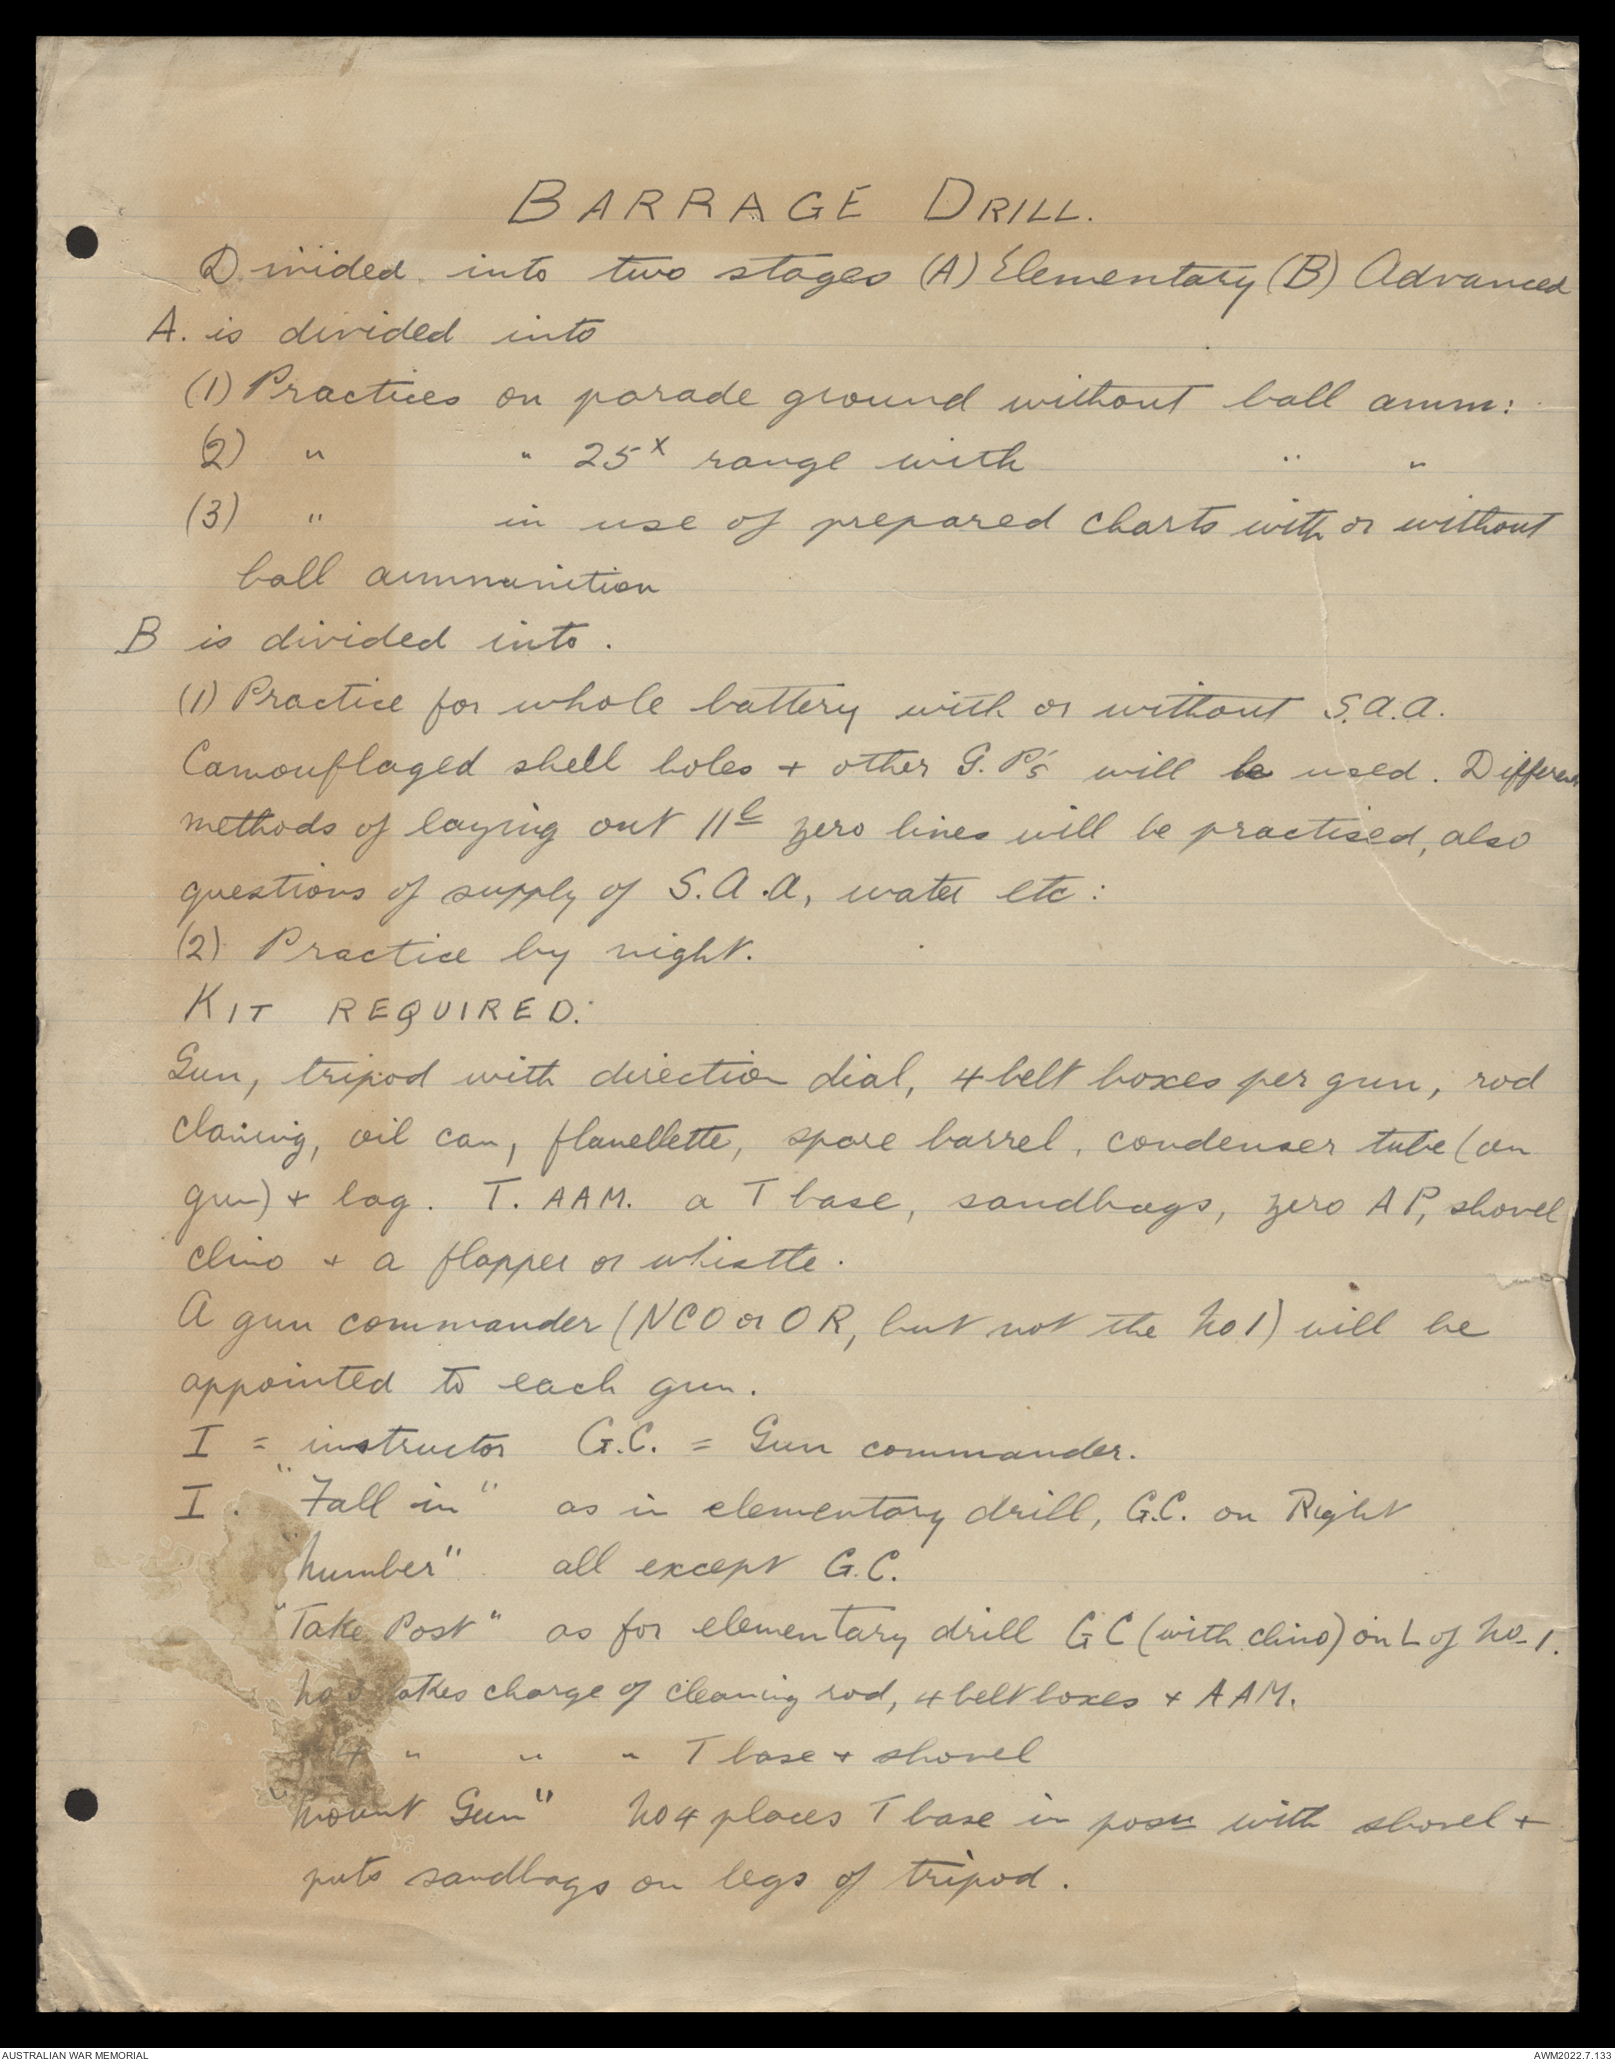 BARRAGE DRILL.
Divided into two stages (A) Elementary (B) Advanced
A. is divided into
(1) Practices on parade ground without ball amm:
(2) " " 25ˣ range with " "
(3) " in use of prepared charts with or without
ball ammunition
B is divided into.
(1) Practice for whole battery with or without S.A.A.
Camouflaged shell holes + other G.P's will be used. Different
methods of laying out 11ˡ zero lines will be practised, also
questions of supply of S.A.A, water etc:
(2) Practice by night.
KIT REQUIRED:
Gun, tripod with direction dial, 4 belt boxes per gun, rod
claning, oil can, flanellette, spare barrel, condenser tube (on
gun) + bag. T. AAM. a T base, sandbags, zero AP, shovel
clino + a flapper or whistle.
A gun commander (NCO or OR, but not the No 1) will be
appointed to each gun.
I = instructor G.C. = Gun commander.
I. "Fall in" as in elementary drill, G.C. on Right
"Number" all except G.C.
"Take Post" as for elementary drill GC (with clino) on L of No 1.
No 3 takes charge of cleaning rod, 4 belt boxes + AAM.
4 " " " T base + shovel
"Mount Gun" No 4 places T base in posn with shovel +
puts sandbags on legs of tripod.
AUSTRALIAN WAR MEMORIAL
AWM2022.7.133